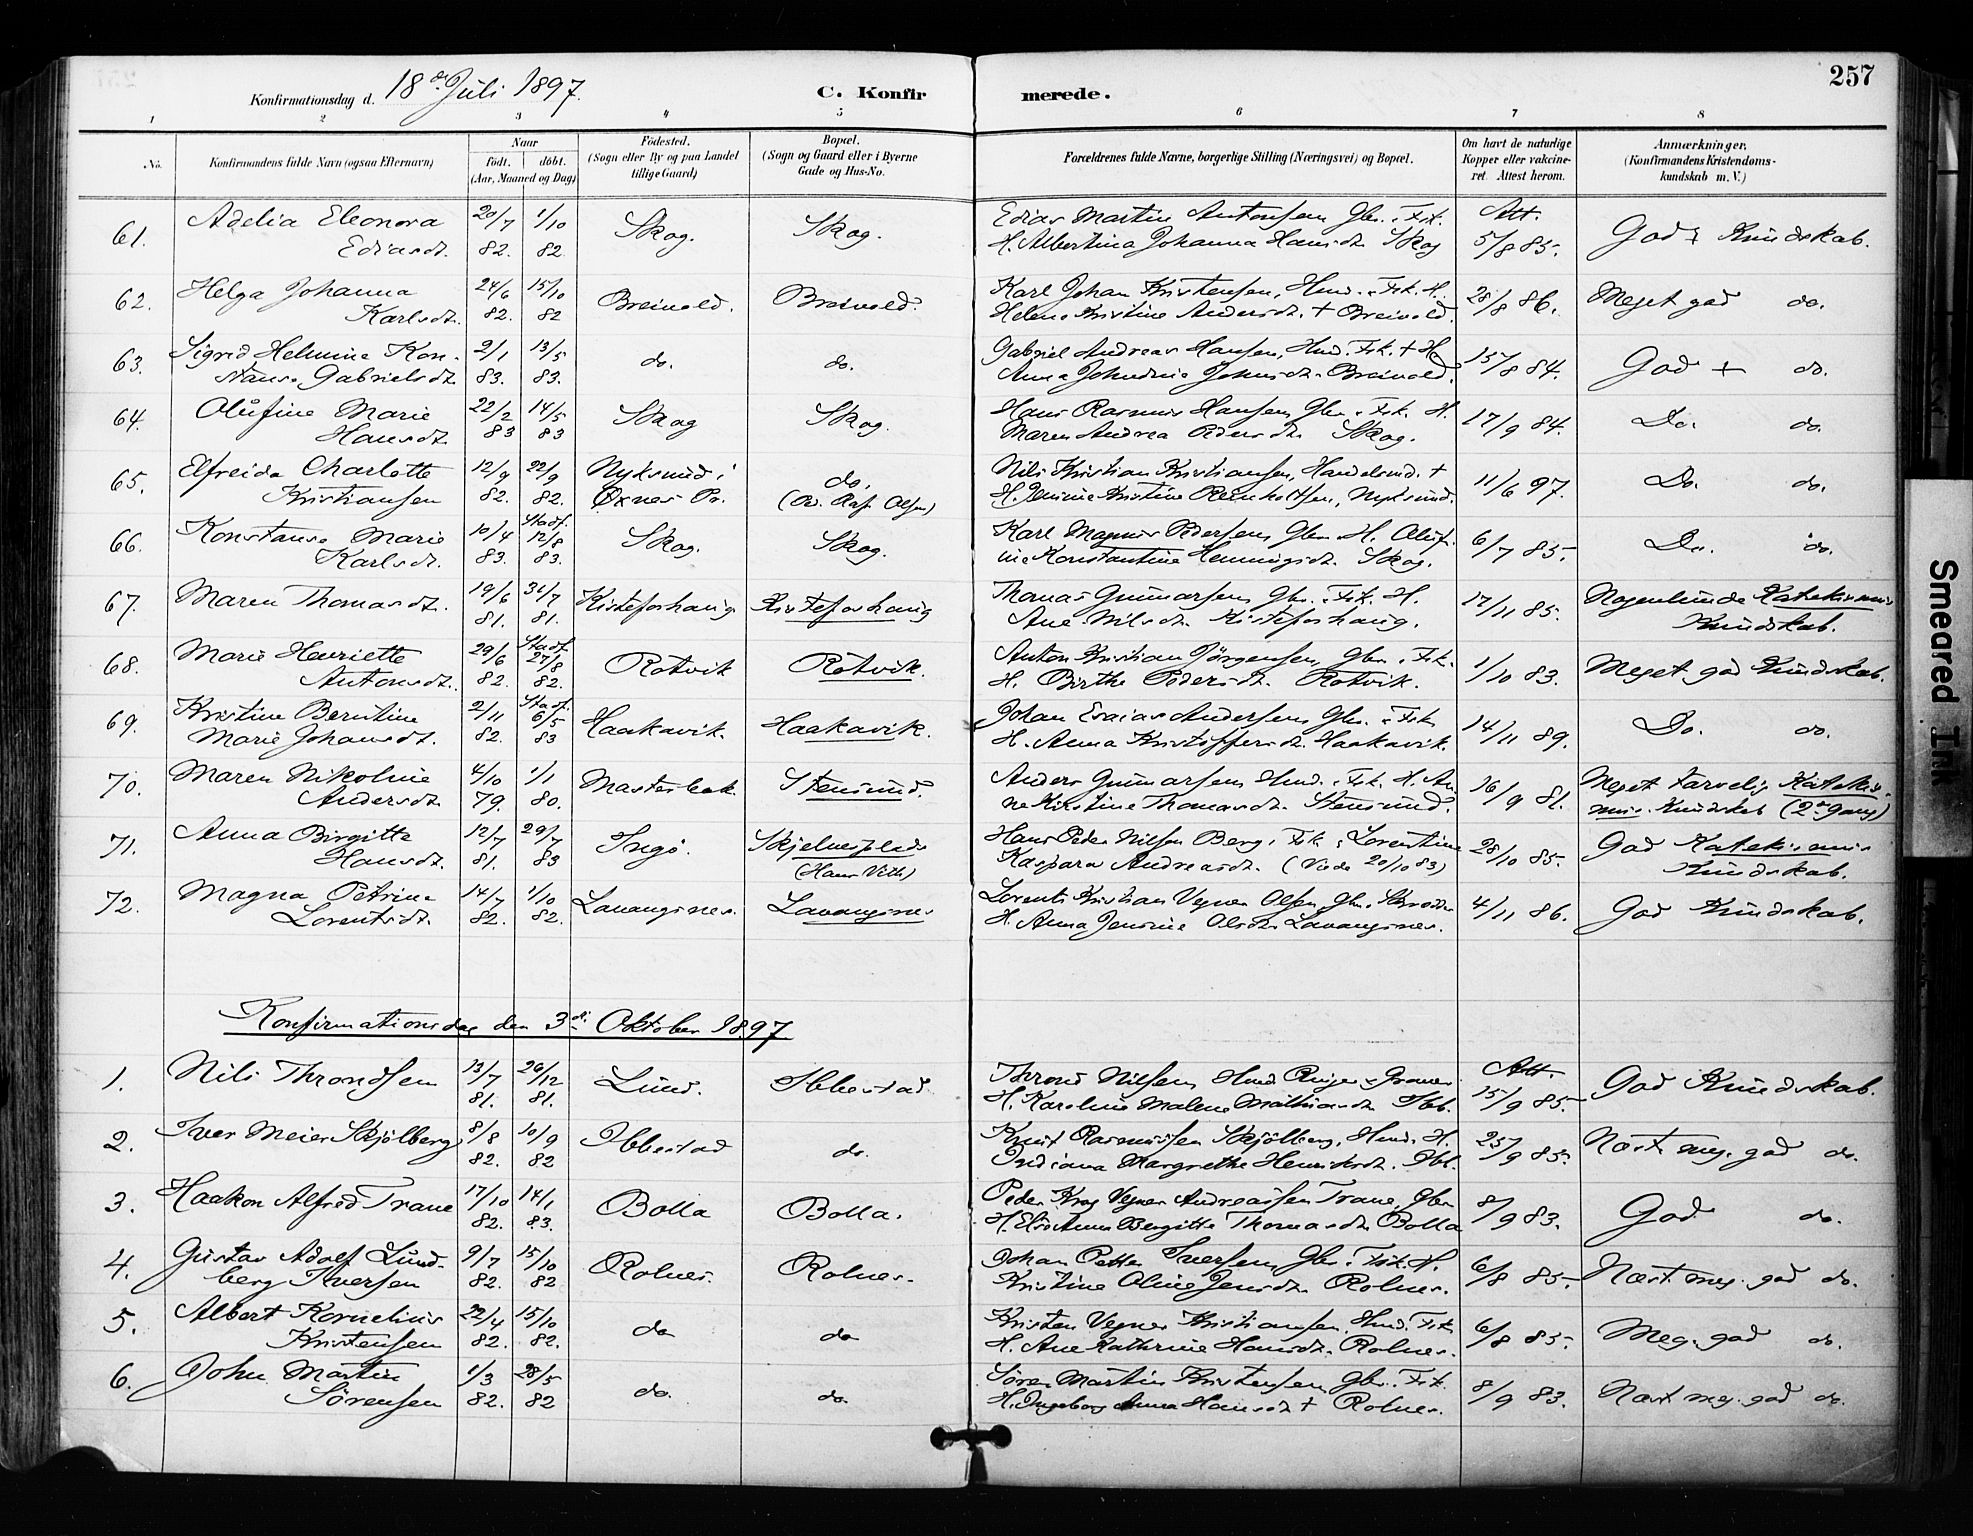 257
Konfirmationsdag d. 18de Juli 1897.
C. Konfirmerede.
1 2 3 4 5 6 7 8
No. Konfirmandens fulde Navn (ogsaa Efternavn) Naar født. døbt. (Aar, Maaned og Dag) Fødested. (Sogn eller By og paa Landet tillige Gaard) Bopæl. (Sogn og Gaard eller i Byerne Gade og Hus-No. Forældrenes fulde Navne, borgerlige Stilling (Næringsvei) og Bopæl. Om havt de naturlige Kopper eller vakcineret. Attest herom. Anmærkninger. (Konfirmandens Kristendomskundskab m. V.)
61. Adelia Eleonora 20/7 1/10 Skog. Skog. Edias Martin Antonsen Gbr. Fsk. Att.
Ediasdt. 82. 82 H. Albertina Johanna Hansdt. Skog 5/8 85. God Kundskab.
62. Helga Johanna 24/6 15/10 Breivold. Breivold. Karl Johan Kristensen, Hmd. Fsk. H. 28/8 86. Meget god do.
Karlsdt. 82. 82 Helene Kristine Andersdt. + Breivold.
63. Sigrid Helmine Kon- 2/1 13/5 do. do. Gabriel Andreas Hansen, Hmd. Fsk. + H. 15/8 84. God + do.
stanse Gabrielsdt. 83. 83. Anna Johndine Johnsdt. Breivold.
64. Olufine Marie 22/2 14/5 Skog Skog. Hans Rasmus Hansen Gbr. Fsk. H. 17/9 84. Do. do.
Hansdt. 83 83 Maren Andrea Pedersdt. Skog.
65. Elfreida Charlotte 12/9 22/9 Nyksund i do. Nils Kristian Kristiansen, Handelsmd. + 11/6 97. Do. do.
Kristiansen 82. 82. Øxnes Pr. H. Jenine Kristine Reinholtsen, Nyksund.
66. Konstanse Marie 10/4 Stadf. 12/8 Skog. Skog. Karl Magnus Pedersen Gbr. H. Oluf- 6/7 85. Do. do.
Karlsdt. 83. 83. ine Konstantine Henningsdt. Skog.
67. Maren Thomasdt. 19/6 31/7 Kisteforhaug Kisteforhaug Thomas Gunnarsen Gbr. Fsk. H. 17/11 85. Nogenlunde Katekismus
81. 81. Ane Nilsdt. Kisteforhaug. Kundskab.
68. Marie Henriette 29/6 Stadf. 27/8 Rotvik Rotvik. Anton Kristian Jörgensen Gbr. Fsk. 1/10 83. Meget god Kundskab.
Antonsdt. 82. 82. H. Birthe Pedersdt. Rotvik.
69. Kristine Berntine 2/11 Stadf. 6/5 Haakavik. Haakavik. Johan Esaias Andersen Gbr. Fsk 14/11 89. Do. do.
Marie Johansdt. 82. 83 H. Anna Kristoffersdt. Haakavik.
70. Maren Nikoline 4/10 1/1 Masterbak. Stensund. Anders Gunnarsen Hmd. Fsk. H. An- 16/9 81. Meget tarvelig Katekis-
Andersdt. 79. 80. ne Kirstine Thomasdt. Stensund. mus Kundskab (2den Gang)
71. Anna Birgitte 12/7 29/7 Ingö. Skjelnesfleds Hans Peder Nilsen Berg, Fsk Lorentine 28/10 85. God Katekismus
Hansdt. 81. 83 (Hans Vith) Kaspara Andreasdt. (Viede 20/10 83) Kundskab.
72. Magna Petrine 14/7 1/10 Lavangsnes. Lavangsnes Lorents Kristian Vegner Olsen, Gbr. Skrædder 4/11 86. God Kundskab.
Lorentsdt. 82. 82. H. Anna Jensine Olsdt. Lavangsnes.
Konfirmationsdag den 3die Oktober 1897
1. Nils Throndsen 13/7 26/12 Lund. Ibbestad Thrond Nilsen Hmd Ringer Graver Att. God Kundskab.
81. 81. H. Karoline Malene Mathiasdt. Ibb. 15/9 85.
2. Iver Meier Skjölberg 8/8 10/9 Ibbestad do. Knut Rasmussen Skjölberg, Hmd. H. 25/9 85. Næst meg. god do.
82. 82 Indiana Margrethe Henriksdt. Ibb.
3. Haakon Alfred Trane 17/10 14/1 Bolla Bolla. Peder Krog Vegner Andreassen Trane, Gbr 8/9 83. God do.
82. 83. H. Elis Anna Bergitte Thomasdt. Bolla
4. Gustav Adolf Lund- 9/7 15/10 Rolnes. Rolnes. Johan Petter Iversen Gbr. Fsk. H. 6/8 85. Næst meg. god do.
berg Iversen 82. 82 Kristine Oline Jensdt. Rolnes.
5. Albert Kornelius 22/4 15/10 do do Kristen Vegner Kristiansen, Hmd. Fsk 6/8 85. Meg. god do.
Kristensen 82. 82. H. Ane Kathrine Hansdt. Rolnes.
6. John Martin 1/3 28/5 do. do. Sören Martin Kristensen Gbr. Fsk. 8/9 83. Næst meg. god do.
Sörensen 82. 82 H. Ingeborg Anna Hansdt + Rolnes.
Smeared Ink